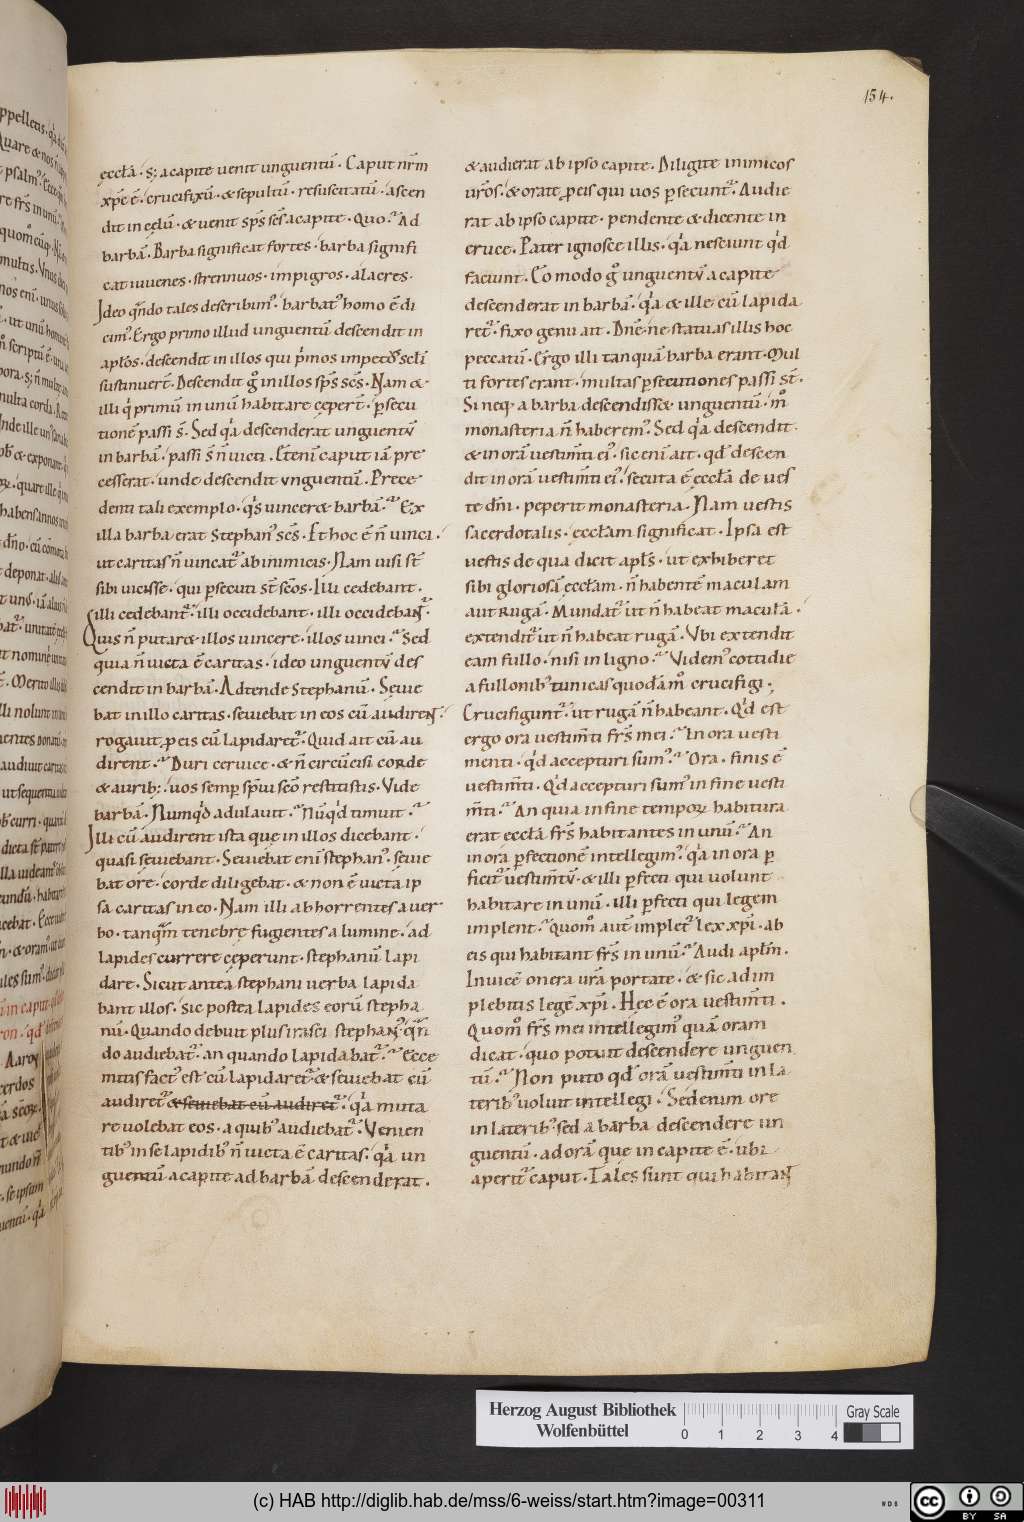 154.
ęccła̅. s; a capite uenit unguentu̅. Caput nr̅m
xp̅c e̅. crucifixu̅. & sepultu̅. resuscitatu̅. ascen
dit in cęlu̅. & uenit sp̅s sc̅s a capite. Quo? Ad
barba̅. Barba significat fortes. barba signifi
cat iuuenes. strennuos. impigros. alacres.
Ideo qn̅do tales describim᷒. barbat᷒ homo e̅ di
cim᷒. Ergo primo illud unguentu̅ descendit in
apłos. descendit in illos qui p̍mos impetus sc̅li
sustinuer̅t. Descendit g̊ in illos sp̅s sc̅s. Nam &
illi q̍ primu̅ in unu̅ habitare cęper̅t. p̱secu
tione̅ passi s̅. Sed q̍a descenderat unguentu̅
in barba̅. passi s̅ n̅ uicti. Eteni̅ caput ia̅ pre
cesserat. unde descendit unguentu̅. Prece
denti tali exemplo. q̍s uincer& barba̅? Ex
illa barba erat Stephan᷒ sc̅s. Et hoc e̅ n̅ uinci.
ut caritas n̅ uincat᷑ ab inimicis. Nam uisi st̅
sibi uicisse. qui p̱secuti st̅ sc̅os. Illi cedebant.
illi cedebant᷑. illi occidebant. illi occideban᷑.
Quis n̅ putar& illos uincere. illos uinci? Sed
quia n̅ uicta e̅ caritas. ideo unguentu̅ des
cendit in barba̅. Adtende Stephanu̅. Sęuie
bat in illo caritas. sęuiebat in eos cu̅ audiren᷑.
rogauit p̱ eis cu̅ lapidaret᷑. Quid ait cu̅ au
dirent? Duri ceruice. & n̅ circu̅cisi corde
& aurib;. uos semp̱ sp̅ui sc̅o restitistis. Vide
barba̅. Numq̍d adulauit? Nu̅q̍d timuit?
Illi cu̅ audirent ista que in illos dicebant.
quasi sęuiebant. Sęuiebat eni̅ stephan᷒. sęuie
bat ore. corde diligebat. & non e̅ uicta ip
sa caritas in eo. Nam illi abhorrentes a uer
bo. tanqua̅m tenebrę fugentes a lumine. ad
lapides currere cęperunt. stephanu̅ lapi
dare. Sicut antea stephani uerba lapida
bant illos. sic postea lapides eoru̅ stepha
nu̅. Quando debuit plus irasci stephan᷒. qn̅
do audiebat᷑. an quando lapidabat᷑? Ecce
mitis fact᷒ est cu̅ lapidaret᷑ & sęuiebat cu̅
audiret᷑ & sęuiebat cu̅ audiret᷑. q̍a muta
re uolebat eos. a quib᷒ audiebat᷑. Venien
tib᷒ in se lapidib᷒ n̅ uicta e̅ caritas. q̍a un
guentu̅ a capite ad barba̅ descenderat.
& audierat ab ipso capite. Diligite inimicos
ur̅os. & orate p̱ eis qui uos p̱secunt᷑. Audie
rat ab ipso capite. pendente & dicente in
cruce. Pater ignosce illis. q̍a nesciunt q̍d
faciunt. Co̅modo g̊ unguentu̅ a capite
descenderat in barba̅. q̍a & ille cu̅ lapida
ret᷑. fixo genu ait. Dn̅e ne statuas illis hoc
peccatu̅. Ergo illi tanqua̅ barba erant. Mul
ti fortes erant. multas p̱secutiones passi st̅.
Si neq; a barba descendiss& unguentu̅. m̊
monasteria n̅ haberem᷒. Sed q̍a descendit
& in ora̅ uestim̅ti ei᷒. sic eni̅ ait. qd̅ descen
dit in ora̅ uestim̅ti ei᷒. secuta e̅ ęccła̅ de ues
te dn̅i. peperit monasteria. Nam uestis
sacerdotalis. ęccłam significat. Ipsa est
uestis de qua dicit apłs. ut exhiberet
sibi gloriosa̅ ęccłam. n̅ habente̅ maculam
aut ruga̅. Mundat᷑ ut n̅ habeat macula̅.
extendit᷑ ut n̅ habeat ruga̅. Vbi extendit
eam fullo. nisi in ligno? Videm᷒ cottidie
a fullonib᷒ tunicas quoda̅m̊ crucifigi.
Crucifigunt᷑. ut ruga̅ n̅ habeant. Q̍d est
ergo ora uestim̅ti fr̅s mei? In ora uesti
menti. q̍d accepturi sum᷒? Ora. finis e̅
uestim̅ti. Q̍d accepturi sum᷒ in fine uesti
m̅ti? An quia in fine tempoꝝ habitura
erat ęccła̅ fr̅s habitantes in unu̅? An
in ora p̱fectione̅ intellegim᷒. q̍a in ora p̱
ficit᷑ uestim̅tu̅. & illi p̱fecti qui uolunt
habitare in unu̅. illi p̱fecti qui legem
implent? Quom̊ aut̅ implet᷑ lex xp̅i. ab
eis qui habitant fr̅s in unu̅? Audi apłm̅.
Inuice̅ onera ur̅a portate. & sic adim
plebitis lege̅ xp̅i. Hęc e̅ ora uestim̅ti.
Quom̊ fr̅s mei intellegim᷒ qua̅ oram
dicat. quo potuit descendere unguen
tu̅? Non puto qd̅ ora̅ uestim̅ti in la
terib᷒ uoluit intellegi. Sędenim ore
in laterib᷒. sed a barba descendere un
guentu̅. ad ora̅ quę in capite e̅. ubi
aperit᷑ caput. Tales sunt qui habitan᷑
Herzog August Bibliothek
Wolfenbüttel
0 1 2 3 4
Gray Scale
(c) HAB http://diglib.hab.de/mss/6-weiss/start.htm?image=00311
WDB
cc BY SA